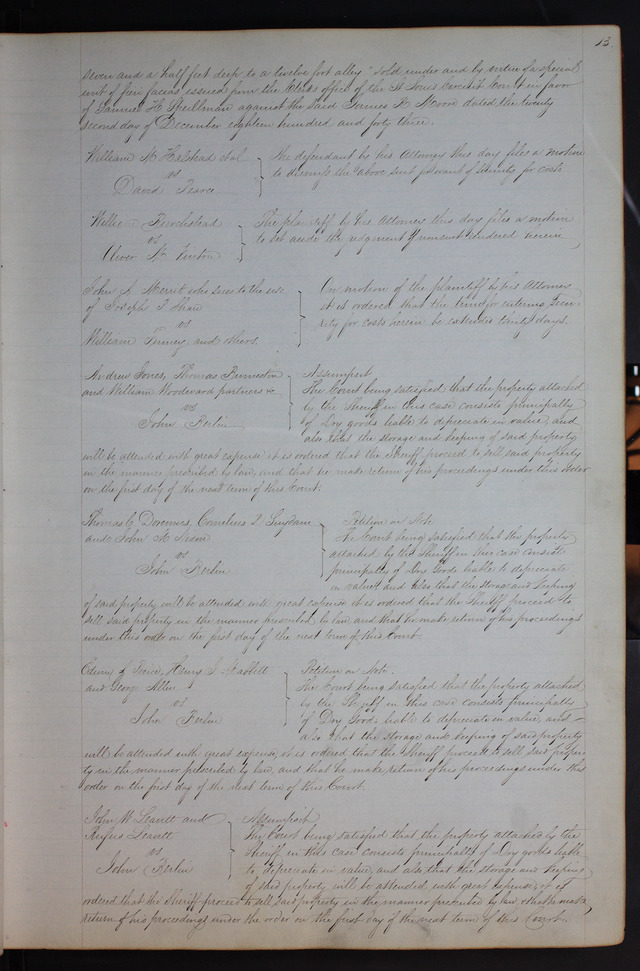 13
seven and a half feet deep to a twelve foot alley" sold under and by virtue of a special
writ of fieri facias issued from the Clerks office of the St Louis Circuit Court in favor
of Samuel H Spellman against the said James A Moore dated the twenty
second day of December eighteen hundred and forty three.
William N Halstead et al
vs
David Pearce
The defendant by his Attorney this day files a motion
to dismiss the above suit for want of security for costs
William
vs
Oliver
The plaintiff by his Attorney this day files a motion
to set aside the judgment of nonsuit rendered herein
John A. Merrit who sues to the use
of Joseph T Shaw
vs
William Finney and others.
On motion of the plaintiff by his Attorney
it is ordered that the time for entering secu-
rity for costs herein be extended thirty days.
Andrew Jones, Thomas
and William Woodward partners &c
vs
John Kerlin
Assumpsit
The Court being satisfied that the property attached
by the Sheriff in this case consists principally
of Dry goods liable to depreciate in value, and
also that the storage and keeping of said property
will be attended with great expense it is ordered that the Sheriff proceed to sell said property
in the manner prescribed by law, and that he make return of his proceedings under this order
on the first day of the next term of this Court.
Thomas C Doremus, Cornelius R Suydam
and John
vs
John Kerlin
Petition on Note
The Court being satisfied that the property
attached by the Sheriff in this case consists
principally of Dry Goods liable to depreciate
in value, and also that the storage and keeping
of said property will be attended with great expense it is ordered that the Sheriff proceed to
sell said property in the manner prescribed by law and that he make return of his proceedings
under this order on the first day of the next term of this Court.
Henry S
and George Allen
vs
John Kerlin
Petition on Note.
The Court being satisfied that the property attached
by the Sheriff in this case consists principally
of Dry Goods liable to depreciate in value, and
also that the storage and keeping of said property
will be attended with great expense, it is ordered that the Sheriff proceed to sell said proper
ty in the manner prescribed by law, and that he make return of his proceedings under this
order on the first day of the next term of this Court.
John W Leavitt and
Rufus Leavitt
vs
John Kerlin
Assumpsit
The Court being satisfied that the property attached by the
Sheriff in this case consists principally of Dry goods liable
to depreciate in value, and also that the storage and keeping
of said property will be attended with great expense, it is
ordered that the Sheriff proceed to sell said property in the manner prescribed by law & that he make
return of his proceedings under the order on the first day of the next term of this Court.